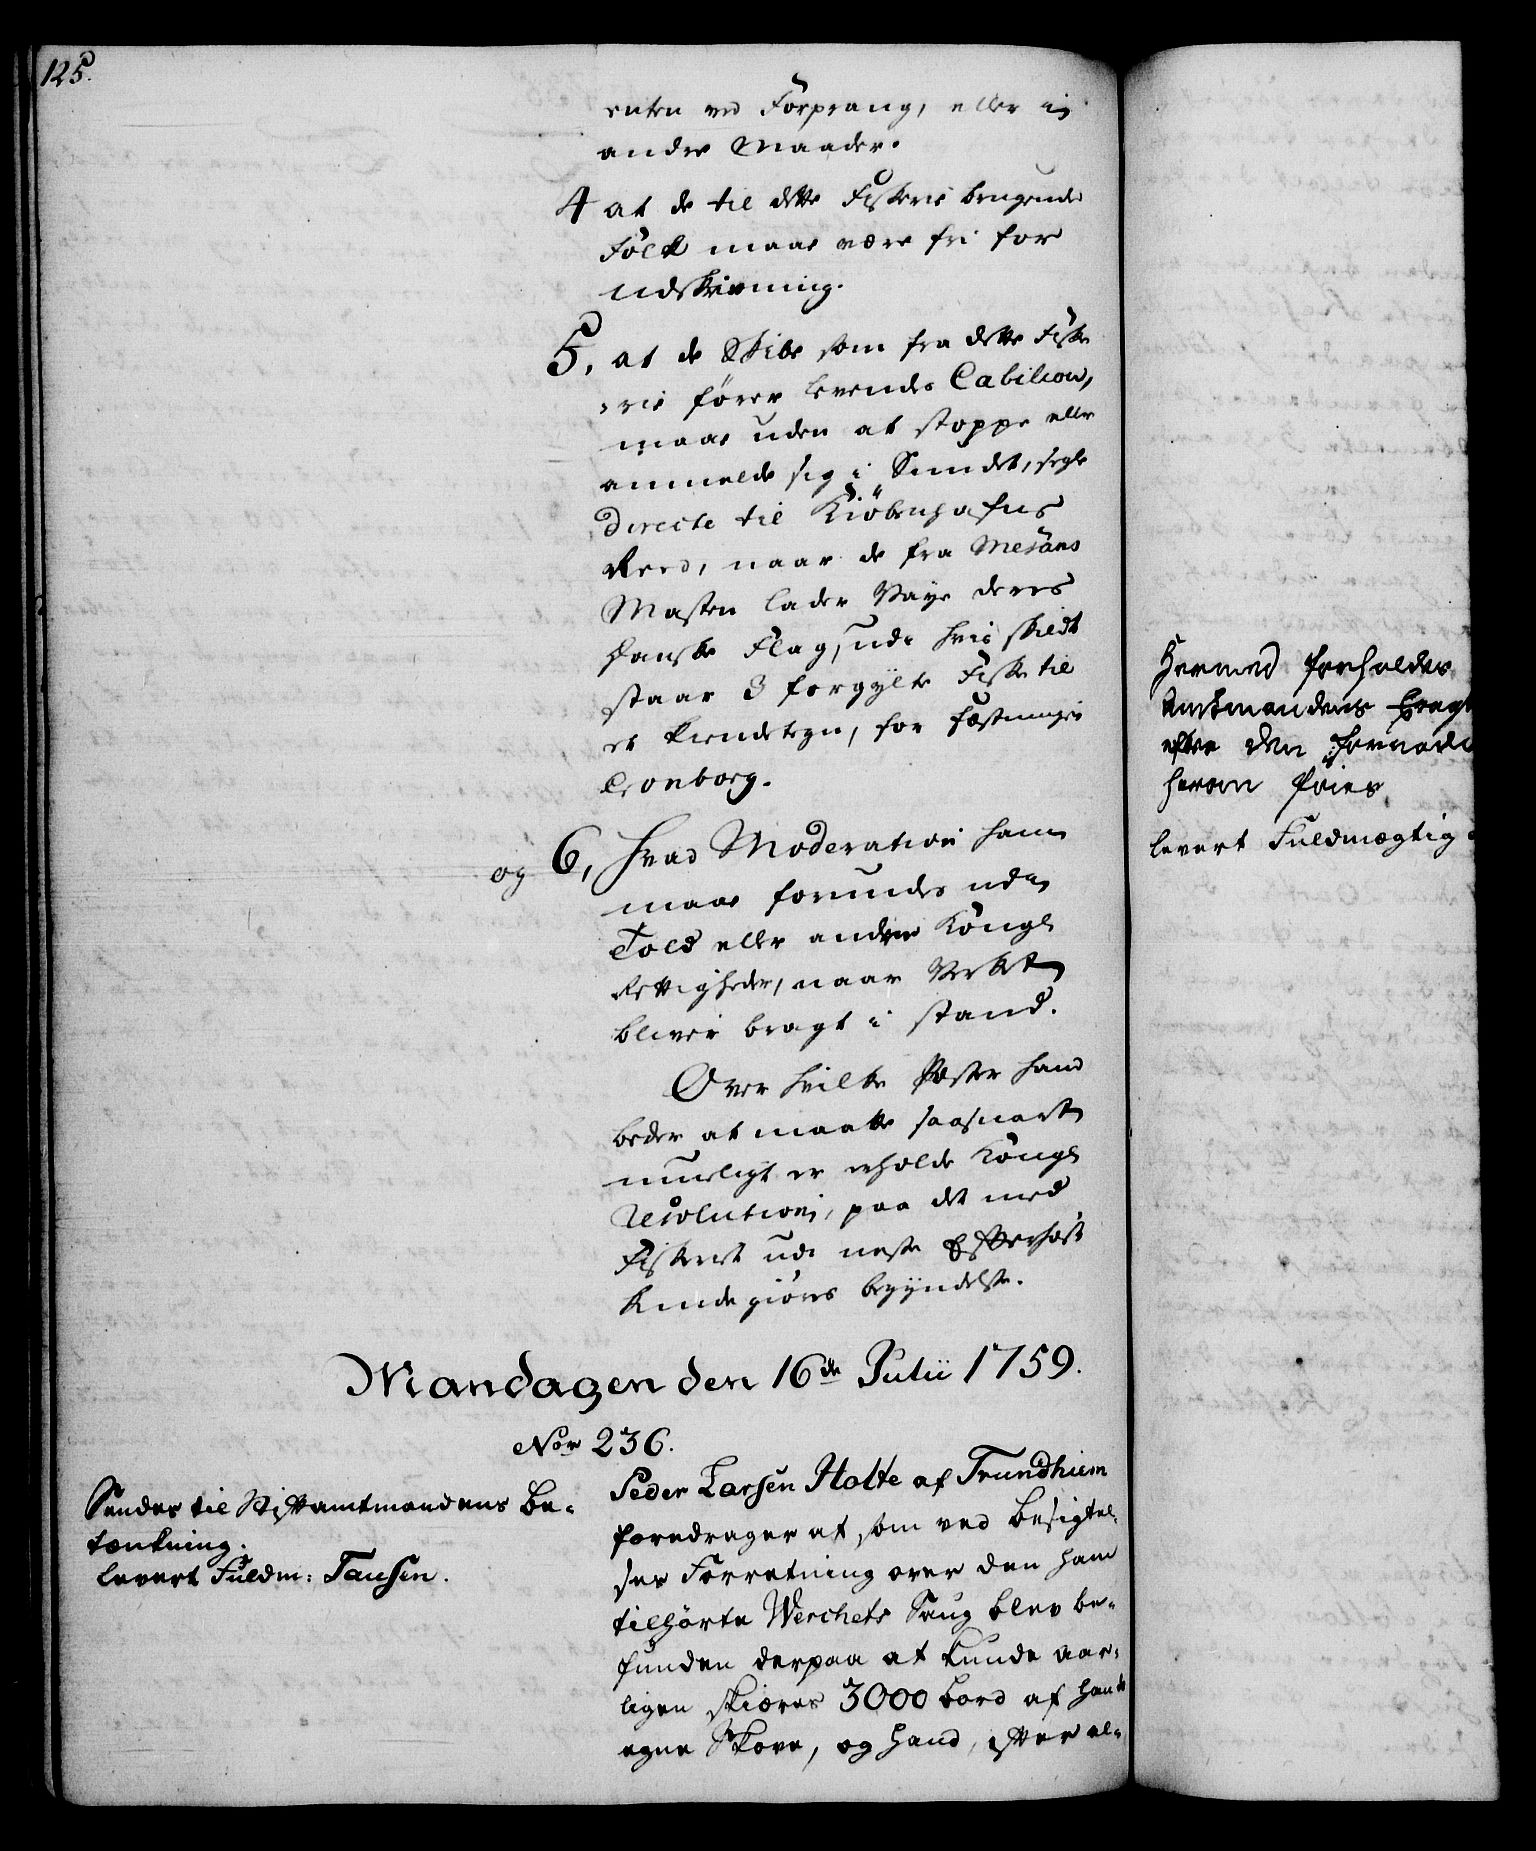 125.
enten ved Forprang, eller i
andre Maader.
4 at de til dette Fiskerie brugende
Folk maae være fri for
udskrivning.
5, at de Skibe som fra dette Fiske
rie fører levende Cabiliou,
maae uden at stoppe eller
anmelde sig i Sundet, segle
directe til Kiöbenhafns
Reed, naar de fra Mesans
Masten lader Vaye deres
danske Flag, udi hvis skildt
staar 3 forgylte Fiske til
et kiendetegn, for Fæstningen
Cronborg.
og 6, Hvad Moderation ham
maae forundes udi
Told eller andre Kongl
Rettigheder, naar Verket
bliver bragt i stand.
Over hvilke Poster hand
beder at maatte saasnart
mueligt er erholde Kongl
Resolution, paa det med
Fiskeriet udi neste Efterhøst
kunde giøres begyndelse.
Mandagen den 16de Julii 1759.
Nor 236.
Sendes til Stiftamtmandens be-
tænkning.
levert Fuldm: Tausen.
Peder Larsen Holte af Trundhiem
foredrager at som ved besigtel-
ses Forretning over den ham
tilhørte Werchets Saug blev be-
funden derpaa at kunde aar-
ligen skiæres 3000 bord af hans
egne Skove, og hand, efter al-
Hermed forholdes
Amtmandens
efter den
herom
levert Fuldmægtig